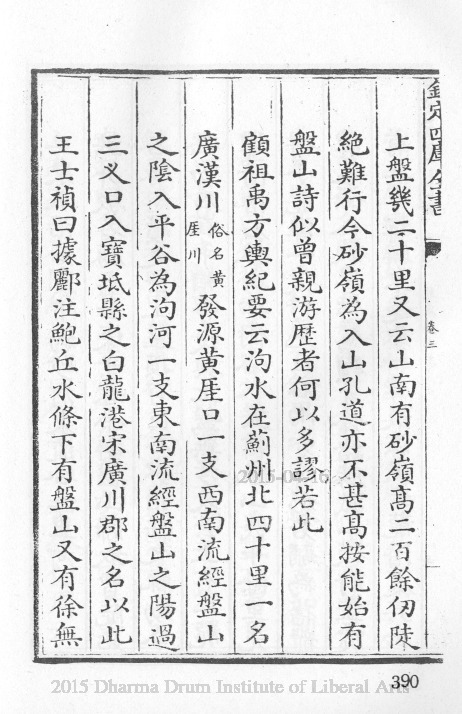 欽定四庫全書
卷三
上盤幾二十里又云山南有砂嶺髙二百餘仞陡
絶難行今砂嶺為入山孔道亦不甚髙按能始有
盤山詩似曾親游歴者何以多謬若此
顧祖禹方輿紀要云泃水在薊州北四十里一名
廣漢川俗名黄崖川發源黄崖口一支西南流經盤山
之隂入平谷為泃河一支東南流經盤山之陽過
三义口入寶坻縣之白龍港宋廣川郡之名以此
王士禎曰據酈注鮑丘水條下有盤山又有徐無
2015-04-16
390
2015 Dharma Drum Institute of Liberal Arts